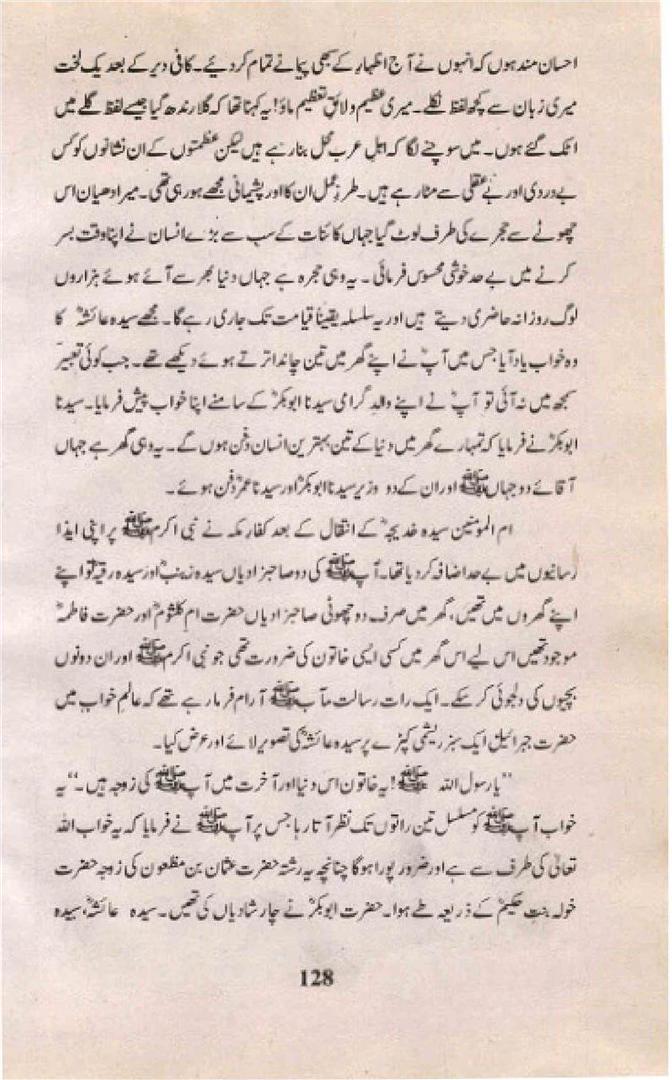 احسان مند ہوں کہ انہوں نے آج اظہار کے سبھی پیمانے تمام کر دیئے۔ کافی دیر کے بعد یک لخت
میری زبان سے کچھ لفظ نکلے۔ میری عظیم ولائق تعظیم ماؤ! یہ کہنا تھا کہ گلا رندھ گیا جیسے لفظ گلے میں
اٹک گئے ہوں۔ میں سوچنے لگا کہ اہل عرب محل بنا رہے ہیں لیکن عظمتوں کے ان نشانوں کو کس
بے دردی اور بے عقلی سے مٹا رہے ہیں۔ طرزِ عمل ان کا اور پشیمانی مجھے ہو رہی تھی۔ میرا دھیان اس
چھوٹے سے حجرے کی طرف لوٹ گیا جہاں کائنات کے سب سے بڑے انسان نے اپنا وقت بسر
کرنے میں بے حد خوشی محسوس فرمائی۔ یہ وہی حجرہ ہے جہاں دنیا بھر سے آئے ہوئے ہزاروں
لوگ روزانہ حاضری دیتے ہیں اور یہ سلسلہ یقیناً قیامت تک جاری رہے گا۔ مجھے سیدہ عائشہؓ کا
وہ خواب یاد آیا جس میں آپؓ نے اپنے گھر میں تین چاند اترتے ہوئے دیکھے تھے۔ جب کوئی تعبیر
سمجھ میں نہ آئی تو آپؓ نے اپنے والد گرامی سیدنا ابوبکرؓ کے سامنے اپنا خواب پیش فرمایا۔ سیدنا
ابوبکرؓ نے فرمایا کہ تمہارے گھر میں دنیا کے تین بہترین انسان دفن ہوں گے۔ یہ وہی گھر ہے جہاں
آقائے دو جہاں ﷺ اور ان کے دو وزیر سیدنا ابوبکرؓ اور سیدنا عمرؓ دفن ہوئے۔
ام المومنین سیدہ خدیجہؓ کے انتقال کے بعد کفار مکہ نے نبی اکرم ﷺ پر اپنی ایذا
رسانیوں میں بے حد اضافہ کر دیا تھا۔ آپ ﷺ کی دو صاحبزادیاں سیدہ زینبؓ اور سیدہ رقیہؓ تو اپنے
اپنے گھروں میں تھیں، گھر میں صرف دو چھوٹی صاحبزادیاں حضرت ام کلثومؓ اور حضرت فاطمہؓ
موجود تھیں اس لیے اس گھر میں کسی ایسی خاتون کی ضرورت تھی جو نبی اکرم ﷺ اور ان دونوں
بچیوں کی دلجوئی کر سکے۔ ایک رات رسالت مآب ﷺ آرام فرما رہے تھے کہ عالم خواب میں
حضرت جبرائیلؑ ایک سبز ریشمی کپڑے پر سیدہ عائشہؓ کی تصویر لائے اور عرض کیا۔
”یا رسول اللہ ﷺ! یہ خاتون اس دنیا اور آخرت میں آپ ﷺ کی زوجہ ہیں۔“ یہ
خواب آپ ﷺ کو مسلسل تین راتوں تک نظر آتا رہا جس پر آپ ﷺ نے فرمایا کہ یہ خواب اللہ
تعالیٰ کی طرف سے ہے اور ضرور پورا ہوگا چنانچہ یہ رشتہ حضرت عثمان بن مظعون کی زوجہ حضرت
خولہ بنت حکیمؓ کے ذریعہ طے ہوا۔ حضرت ابوبکرؓ نے چار شادیاں کی تھیں۔ سیدہ عائشہؓ، سیدہ
128